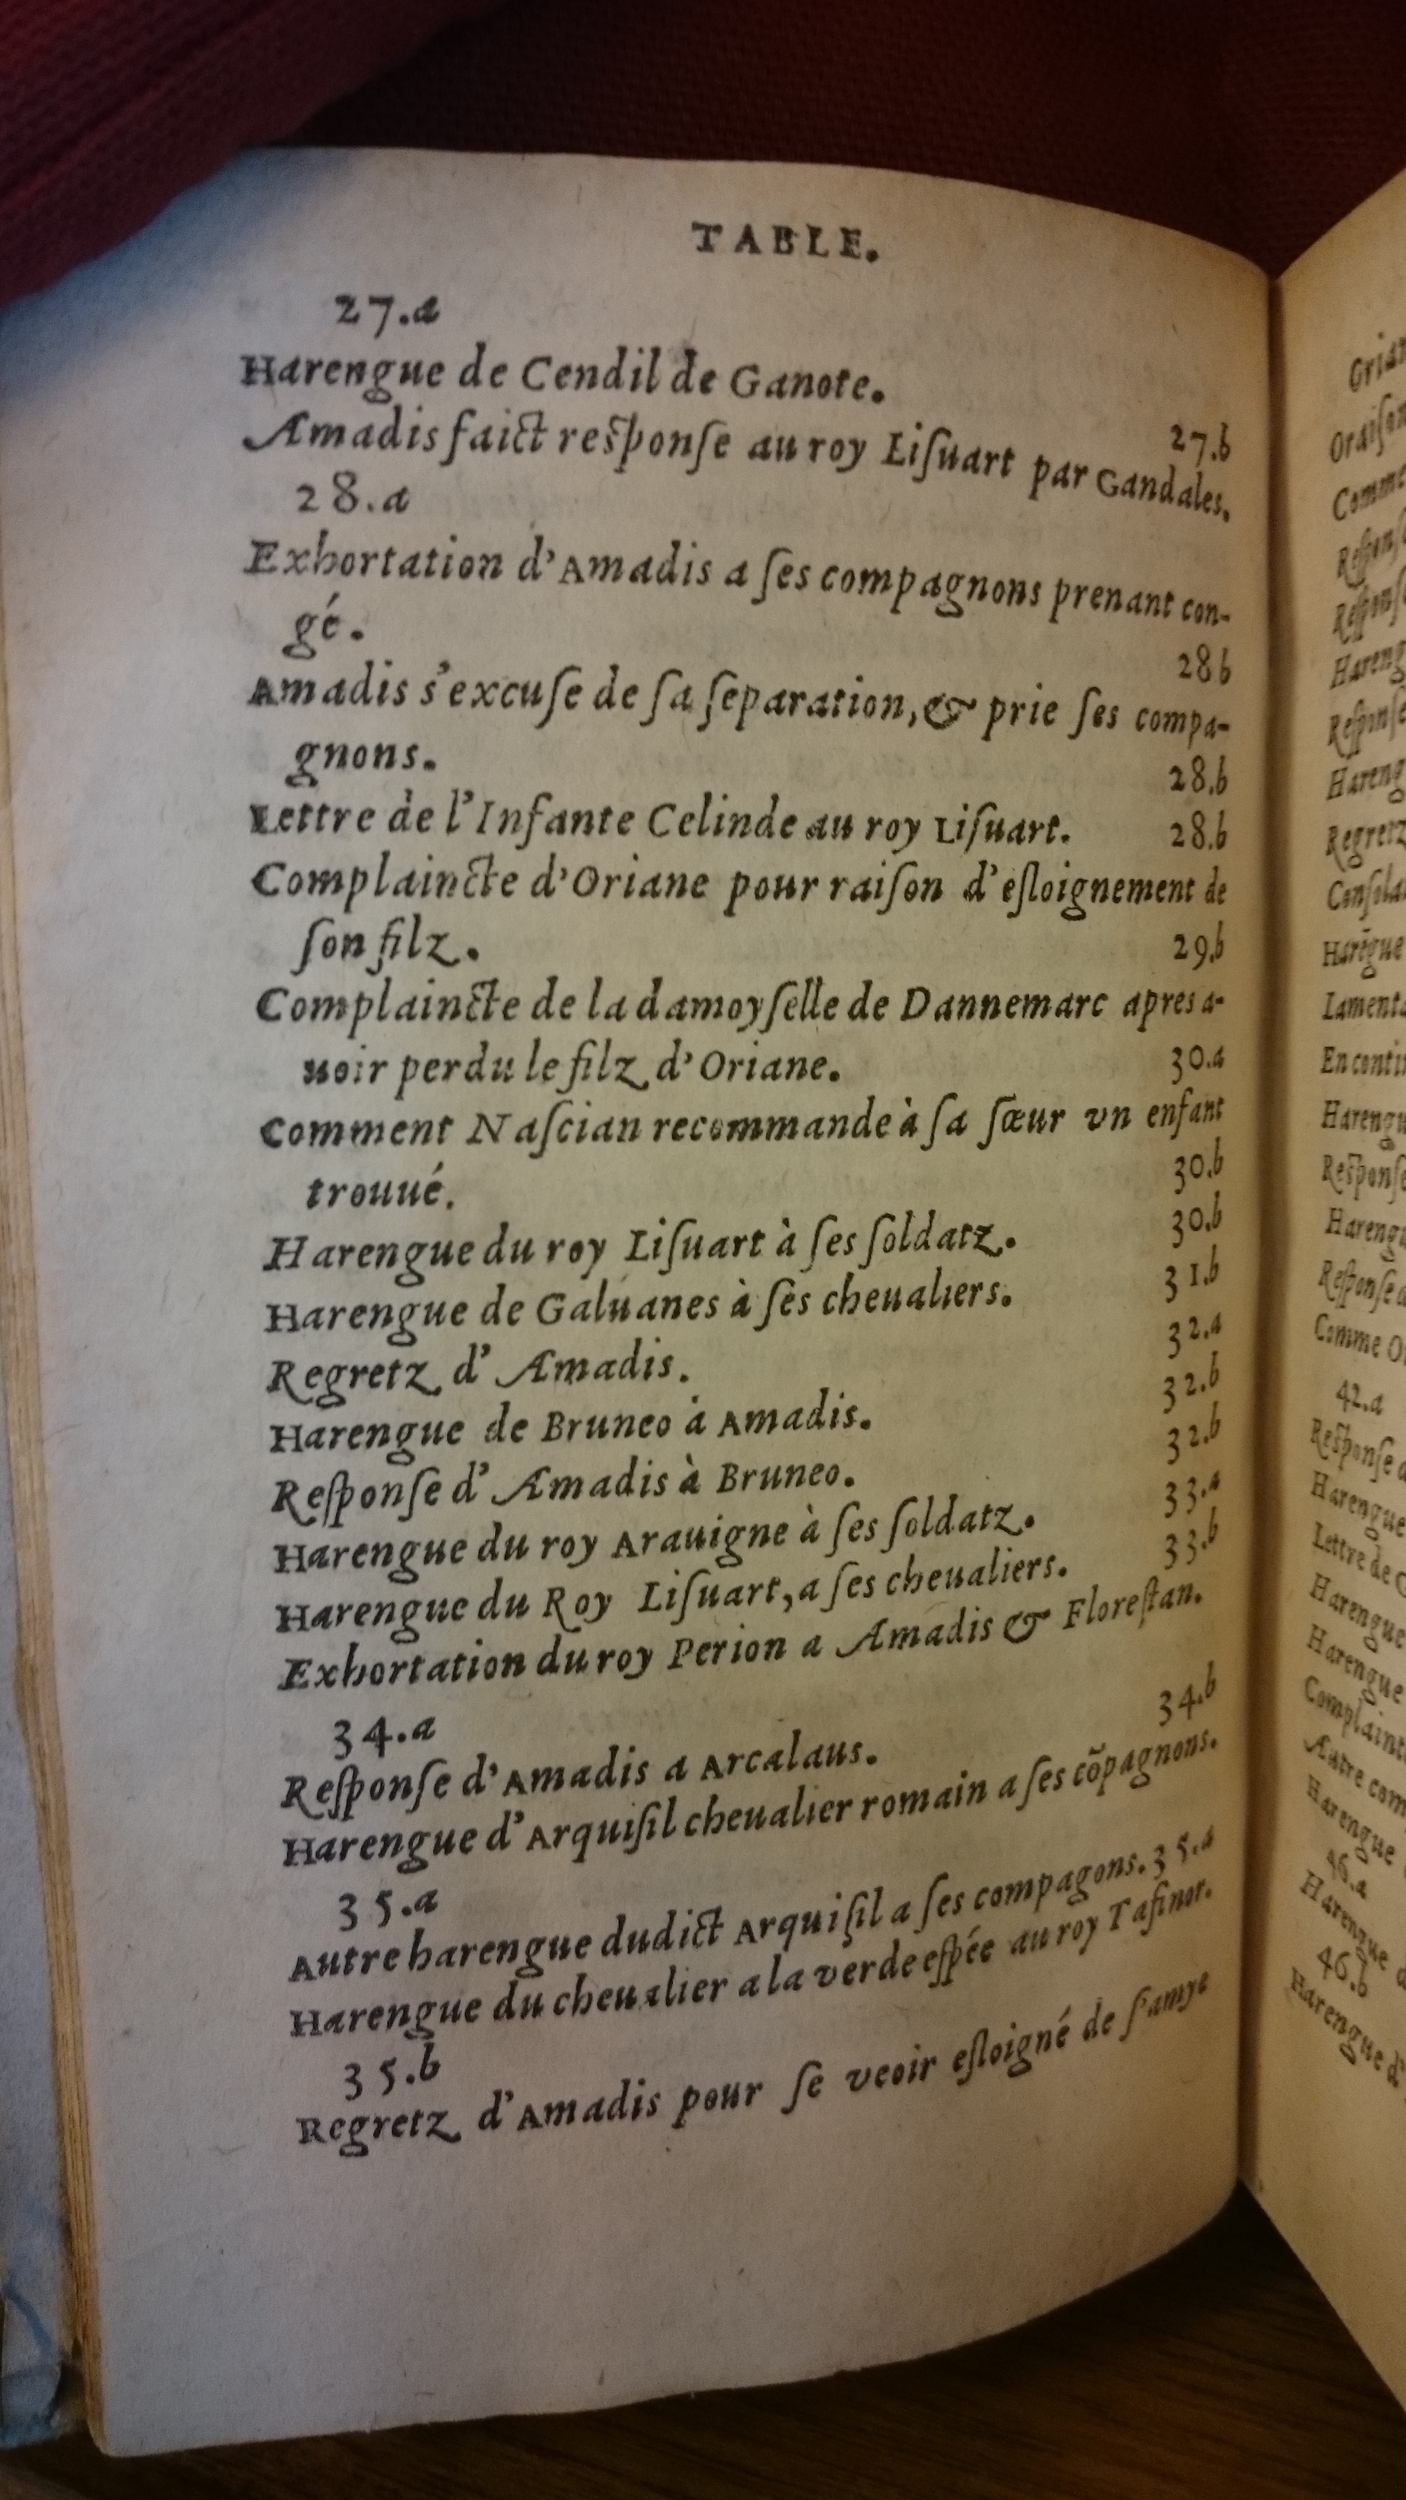 TABLE.
27.a
Harengue de Cendil de Ganote. 27.b
Amadis faict response au roy Liſuart par Gandales.
28.a
Exhortation d'Amadis a ſes compagnons prenant con-
gé. 28b
Amadis s'excuſe de ſa ſeparation, & prie ſes compa-
gnons. 28.b
Lettre de l'Infante Celinde au roy Liſuart. 28.b
Complaincte d'Oriane pour raiſon d'eſloignement de
ſon filz. 29.b
Complaincte de la damoyſelle de Dannemarc apres a-
uoir perdu le filz d'Oriane. 30.a
Comment Naſcian recommande à ſa ſœur vn enfant
trouué. 30.b
Harengue du roy Liſuart à ſes ſoldatz. 30.b
Harengue de Galuanes à ſes cheualiers. 31.b
Regretz d'Amadis. 32.a
Harengue de Bruneo à Amadis. 32.b
Reſponſe d'Amadis à Bruneo. 32.b
Harengue du roy Arauigne à ſes ſoldatz. 33.a
Harengue du Roy Liſuart, a ſes cheualiers. 33.b
Exhortation du roy Perion a Amadis & Floreſtan.
34.a
Reſponſe d'Amadis a Arcalaus. 34.b
Harengue d'Arquiſil cheualier romain a ſes cõpagnons.
35.a
Autre harengue dudict Arquiſil a ſes compagons. 35.a
Harengue du cheualier a la verde eſpée au roy Tafinor.
35.b
Regretz d'Amadis pour ſe veoir eſloigné de ſ'amye
Comme
Reſponſe
Harengue
Regretz
Harẽgue
Reſponſe
42.a
Reſponſe
Harengue
Lettre de
Harengue
Harengue
Autre com
Harengue
46.a
Harengue
46.b
Harengue d'